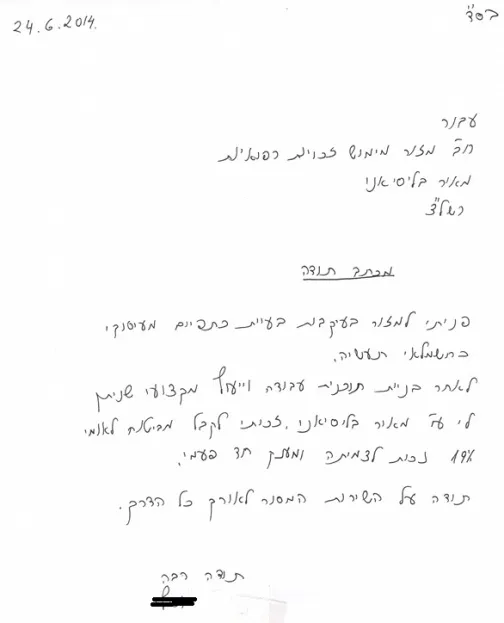 בס"ד
24.6.2014.
עבור
חב' מזור מימוש זכויות רפואיות
מאיר בליסיאני
רשל"צ
מכתב תודה
פניתי למזור בעיקבות בעיית כתפיים מעיסוקי
כחשמלאי תעשיה.
לאחר בניית תוכנית עבודה וייעוץ מקצועי שניתן
לי ע"י מאיר בליסיאני. זכותי לקבל מביטוח לאומי
19% נכות לצמיתה ומענק חד פעמי.
תודה על השירות המסור לאורך כל הדרך.
תודה רבה